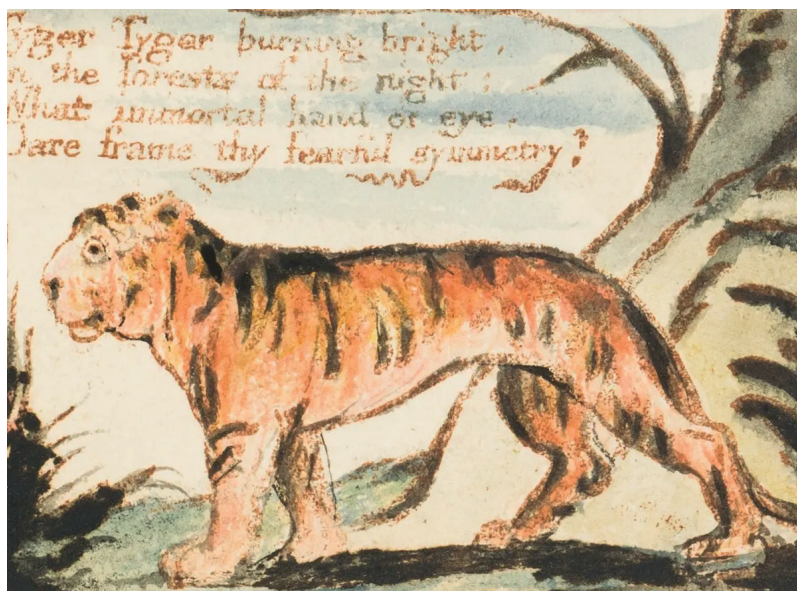 yger Tyger burning bright,
n the forests of the night;
What immortal hand or eye.
Dare frame thy fearful symmetry?